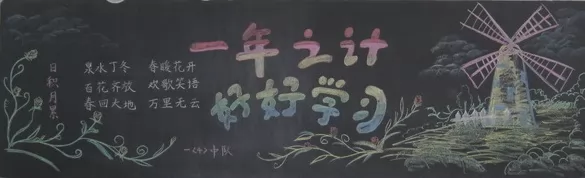 一年之计
好好学习
日积月累
泉水丁冬 春暖花开
百花齐放 欢歌笑语
春回大地 万里无云
一〈4〉中队